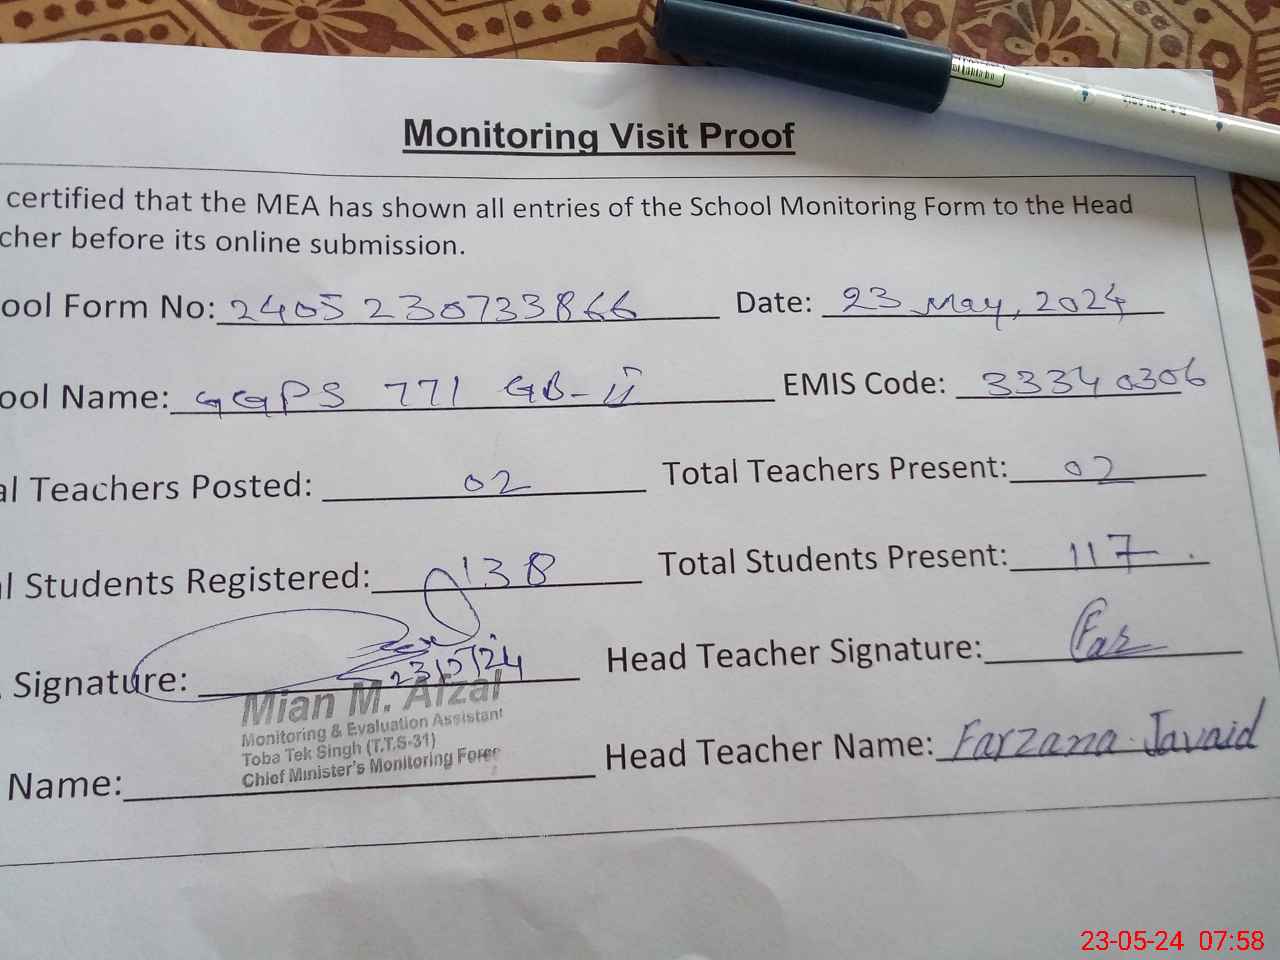 Monitoring Visit Proof
certified that the MEA has shown all entries of the School Monitoring Form to the Head
cher before its online submission.
ool Form No: 2405 230733866 Date: 23 May, 2024
ool Name: GGPS 771 GB-ii EMIS Code: 33340306
al Teachers Posted: 02 Total Teachers Present: 02
al Students Registered: 138 Total Students Present: 117
Signature: 23/5/24 Head Teacher Signature: Far
Mian M. Afzal
Monitoring & Evaluation Assistant
Toba Tek Singh (T.T.S-31)
Chief Minister's Monitoring Force
Name: Head Teacher Name: Farzana Javaid
23-05-24 07:58